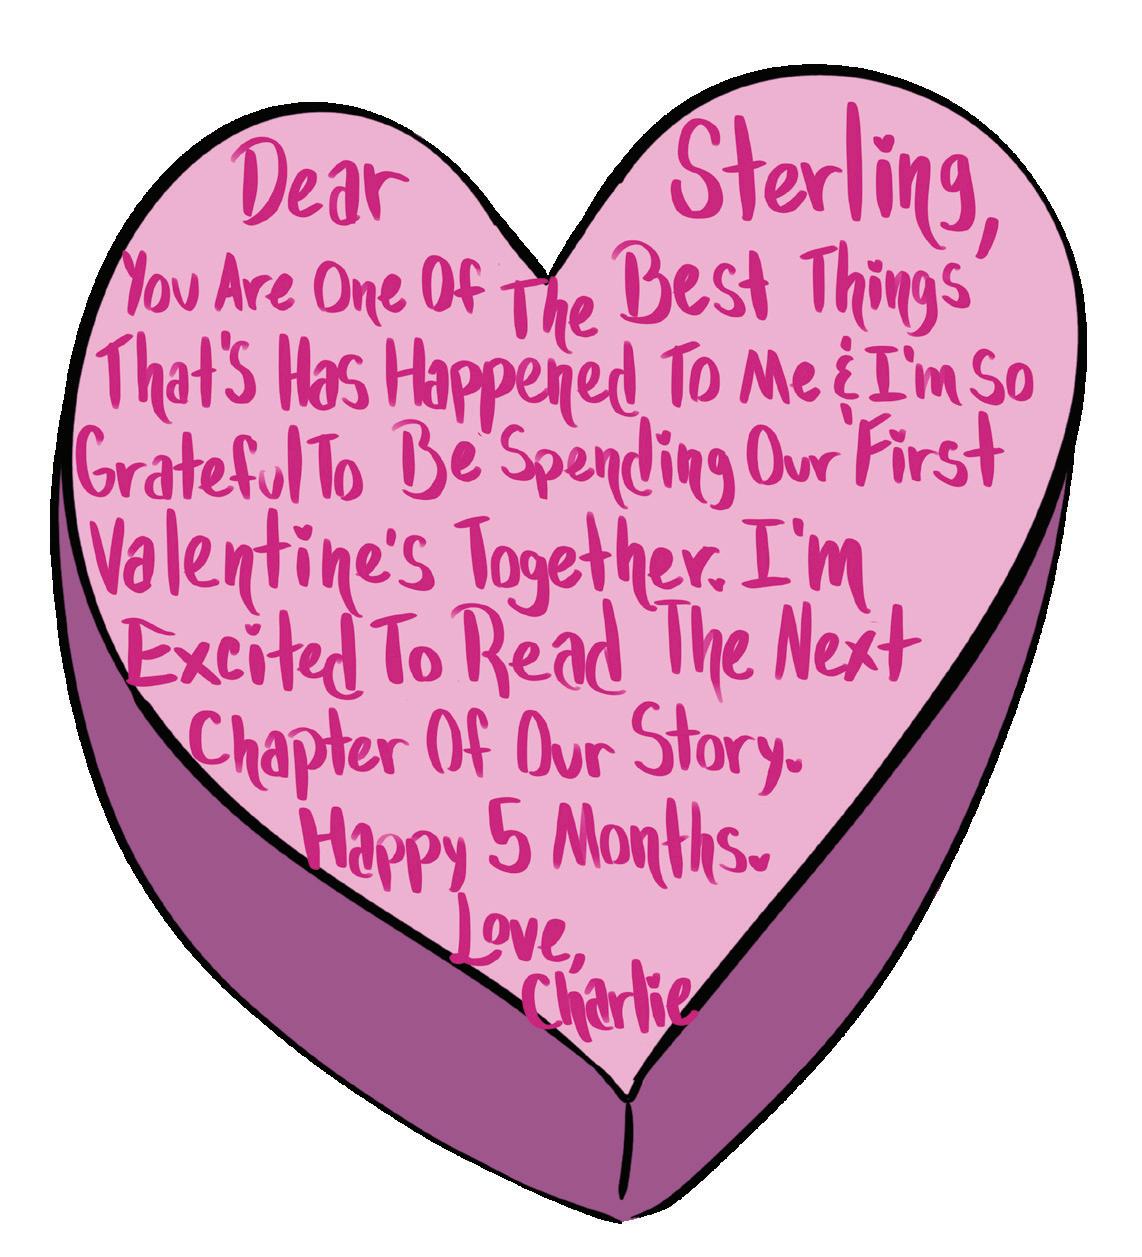 Dear Sterling,
You Are One Of The Best Things
That's Has Happened To Me & I'm So
Grateful To Be Spending Our First
Valentine's Together. I'm
Excited To Read The Next
Chapter Of Our Story.
Happy 5 Months.
Love,
Charlie